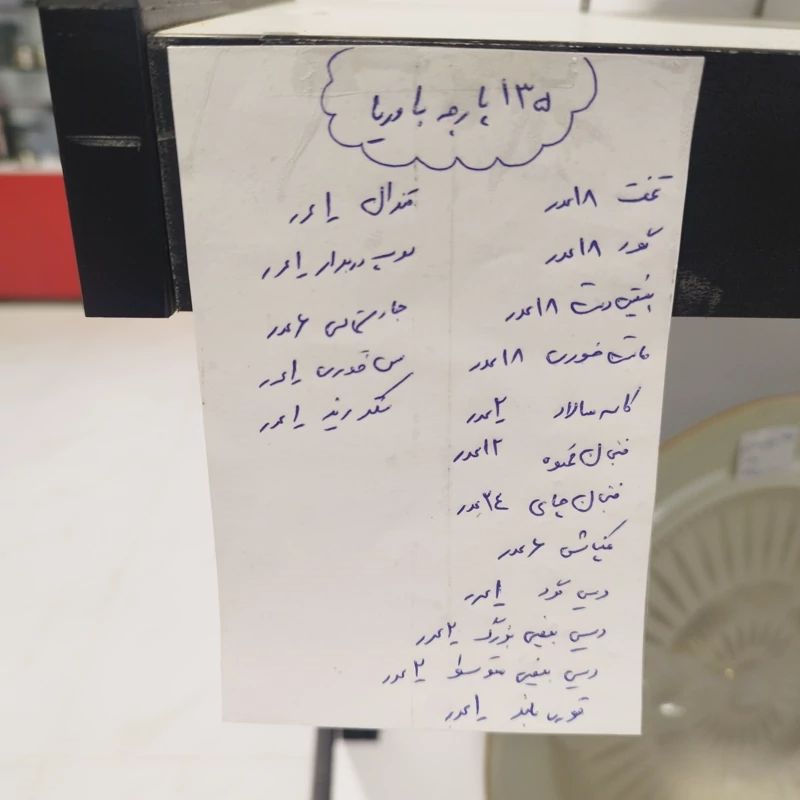 ۱۳۵ پارچه باوریا
تخت ۱۸عدد
گود ۱۸عدد
پیش دست ۱۸عدد
ماست خوری ۱۸عدد
کاسه سالاد ۲عدد
فنجان قهوه ۱۲عدد
فنجان چای ۲۴عدد
گیلاس ۶عدد
دیس گود ۱عدد
دیس بیضی بزرگ ۲عدد
دیس بیضی متوسط ۲عدد
قوری بلند ۱عدد
قندان ۱عدد
سوپ دربدار ۱عدد
جا ۶عدد
سس خوری ۱عدد
نمکدر ریند ۱عدد